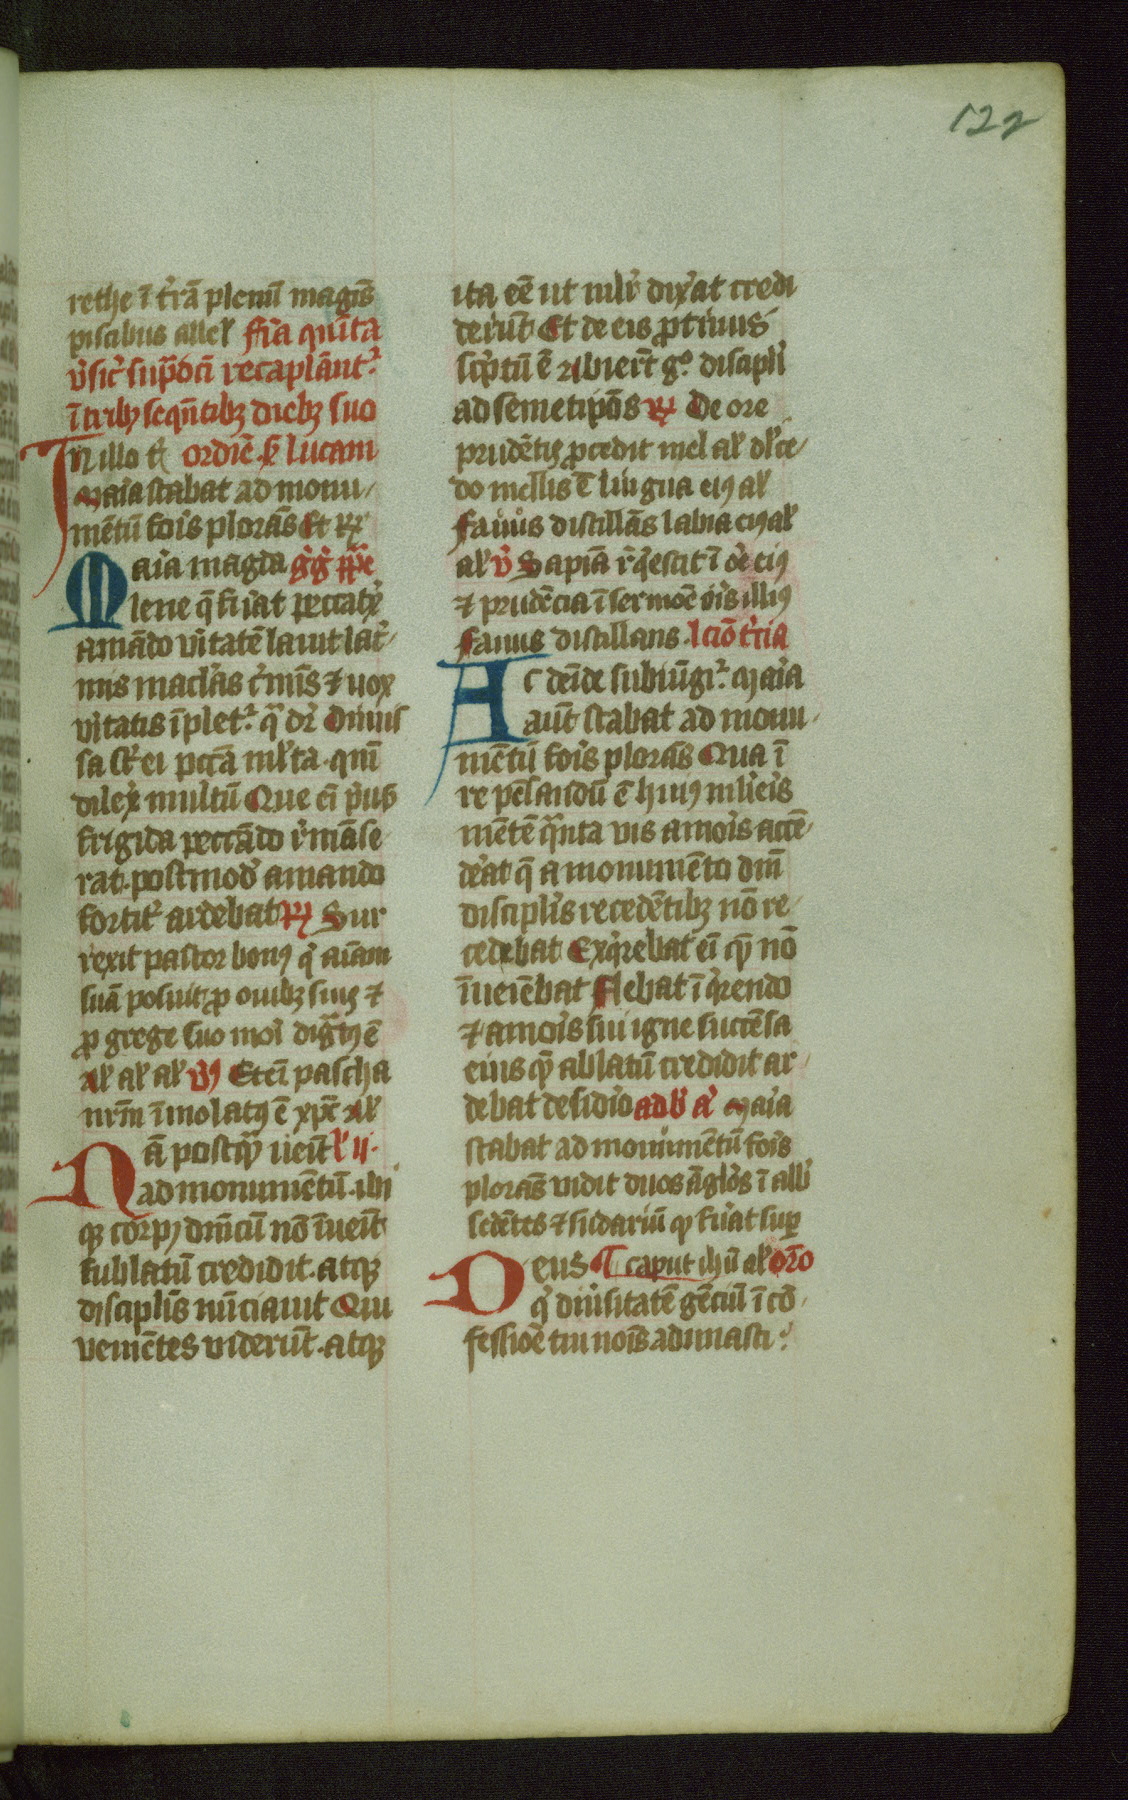 122
rethe ī t̄rā plenū magnis
piscibus alleł fr̄ia quīta
v̄sic̄ sup̄dc̄i recaplānt᷑
ī tribꝫ seqn̄tibꝫ diebꝫ suo
In illo t̄ ordīe s̄ lucam
Maīa stabat ad monu
mētū foīs plorās Et R̄
Maīa magda gḡ pp̄e
lene q̄ fūat peccatͥx
amādo v̄itatē lauit lac̄
mis maclās c̄mīs ⁊ uox
v̄itatis īplet᷑ q̄ dr̄ Dimis
sa st̄ ei pccā ml̄ta qm̄
dilex̄ multū Que eī p̄us
frigida peccādo r̄māse
rat postmod̄ amando
fortit̄ ardebat R̄ Sur
rexit pastor bonꝰ q̄ aīam
suā posuit ꝓ ouibꝫ suis ⁊
ꝓ grege suo mori dignatꝰ ē
al̄ al̄ al̄ v̄ꝰ Eteī pascha
nr̄m īmolatꝰ ē xp̄c al̄
Nā postꝙ̄ ueīt l̄ ij
ad monumētū ibi
qꝫ corpꝰ dn̄icū nō īueīt
sublatū credidit atqꝫ
disciplīs nūciauit Qui
venīetes viderūt atqꝫ
ita eē ut mlīr dix̄at credi
derūt Et de eis ꝓtinus
sc̄ptū ē Abierūt g̊ discipli
ad semetip̄os R̄ De ore
prudētis ꝓcedit mel al̄ dl̄ce
do mellis ē lingua eiꝰ al̄
fauus distillās labia eiꝰ al̄
al̄ v̄ Sapīa r̄q̄escit ī c̄de eiꝰ
⁊ prudēcia ī sermōe oris illiꝰ
fauus distillans lcīo t̄cia
Ac deīde subiūgit᷑ Maīa
aut̄ stabat ad monu
mētū foīs plorās Qua ī
re pēsandū ē huiꝰ mlieīs
mētē q̄nta vis amoīs accē
d̄eat q̄ a monumēto dn̄i
disciplīs recedētibꝫ nō re
cedebat Exq̄rebat eī qꝫ nō
īueīebat flebat ī q̄rendo
⁊ amoīs sui igne succēsa
eius qꝫ ablatū credidit ar
debat desid̄io ad b̄ a᷑ Maīa
stabat ad monumētū foīs
plorās vidit duos āglōs ī alb̄
sedētes ⁊ sudariū qꝫ fūat suꝑ
Deus caput ih̄u al̄ or̄o
q̄ diūsitatē gēciū ī cō
fessiōe tui noīs adunasti